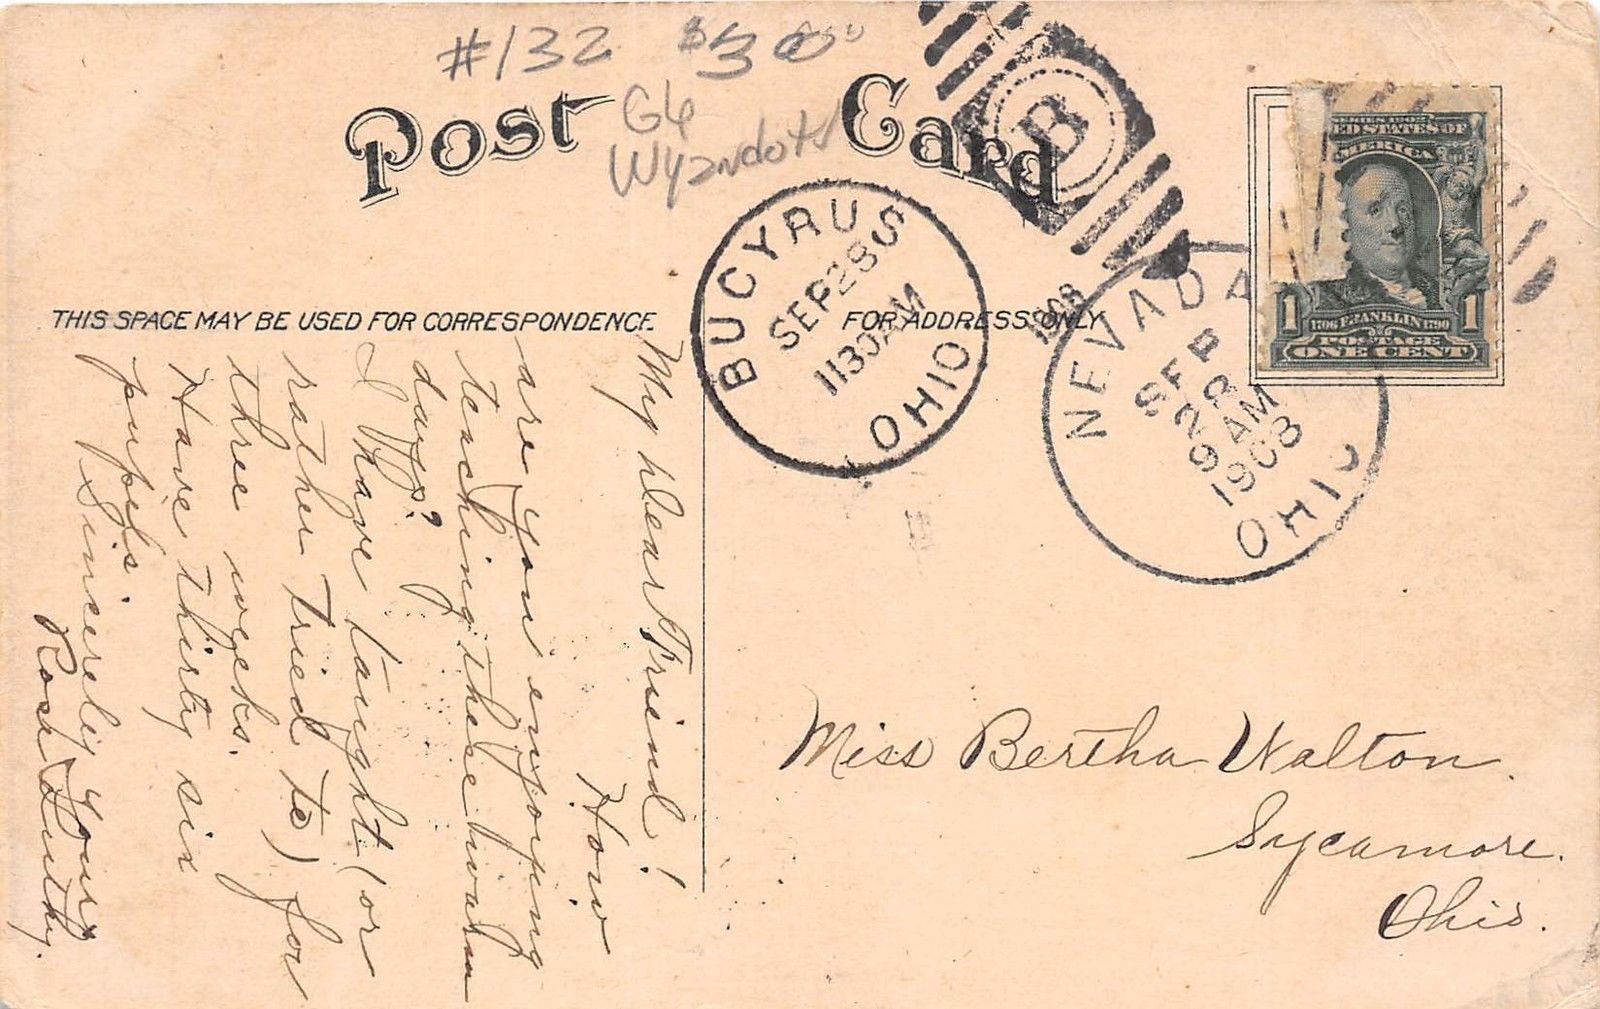 #132 $30
G6
Wyandot
Post Card
BUCYRUS
SEP 28
1130 AM
OHIO
1908
B
NEVADA
SEP
28
9 AM
1908
OHIO
SERIES 1902
UNITED STATES OF
AMERICA
1 1706 FRANKLIN 1790 1
POSTAGE
ONE CENT
THIS SPACE MAY BE USED FOR CORRESPONDENCE
FOR ADDRESS ONLY
My Dear Friend!
How
are you enjoying
teaching these warm
days?
I have taught (or
rather tried to) for
three weeks.
Have thirty six
pupils.
Sincerely yours
Miss Bertha Walton.
Sycamore.
Ohio.